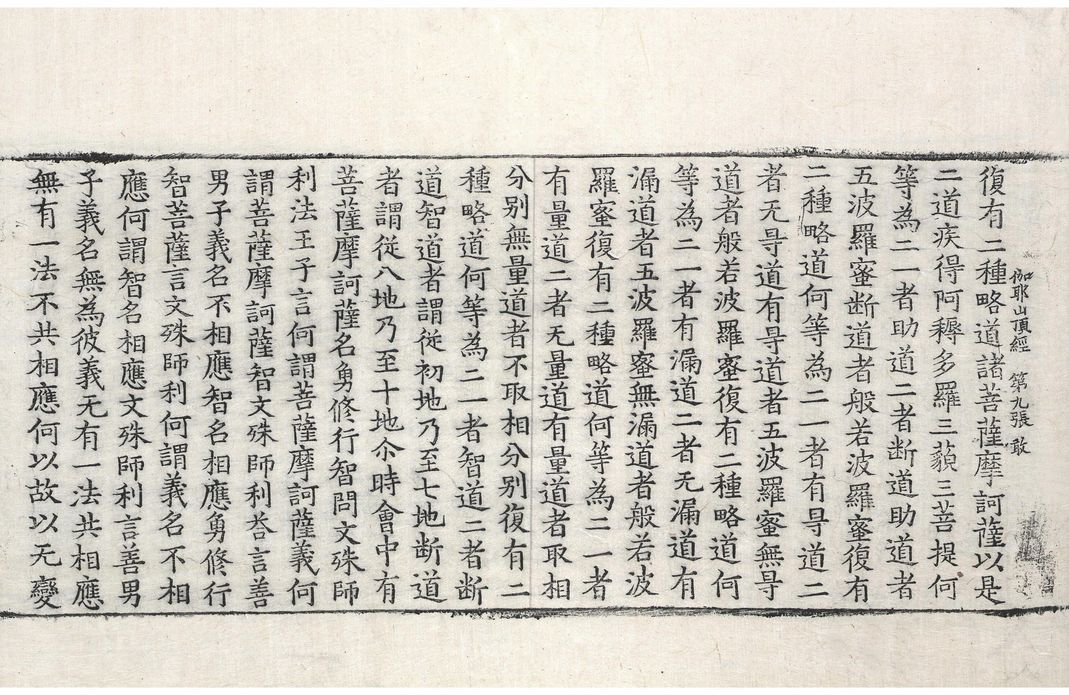 伽耶山頂經　第九張　敢
復有二種略道諸菩薩摩訶薩以是
二道疾得阿耨多羅三藐三菩提何
等為二一者助道二者断道助道者
五波羅蜜断道者般若波羅蜜復有
二種略道何等為二一者有导道二
者无导道有导道者五波羅蜜無导
道者般若波羅蜜復有二種略道何
等為二一者有漏道二者无漏道有
漏道者五波羅蜜無漏道者般若波
羅蜜復有二種略道何等為二一者
有量道二者无量道有量道者取相
分别無量道者不取相分别復有二
種略道何等為二一者智道二者断
道智道者謂從初地乃至七地断道
者謂從八地乃至十地尒時會中有
菩薩摩訶薩名勇修行智問文殊師
利法王子言何謂菩薩摩訶薩義何
謂菩薩摩訶薩智文殊師利荅言善
男子義名不相應智名相應勇修行
智菩薩言文殊師利何謂義名不相
應何謂智名相應文殊師利言善男
子義名無為彼義无有一法共相應
無有一法不共相應何以故以无變